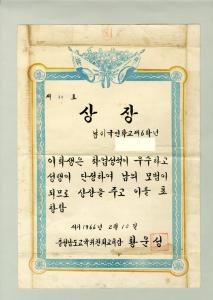 제 호
상 장
남이국민학교제6학년
이학생은 학업성적이 우수하고
성행이 단정하여 남의 모범이
되므로 상장을 주고 이를 표
창함
서기 1966년 2월 10일
충청남도교육위원회교육감